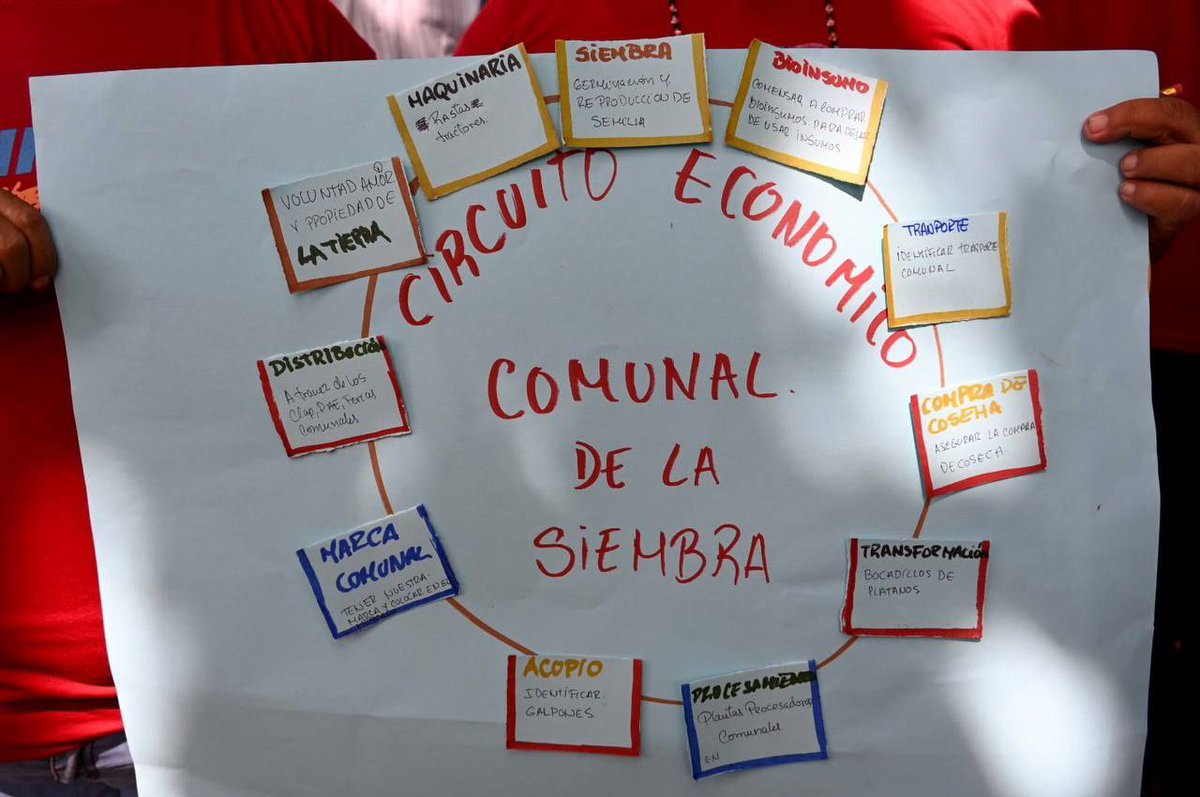 CIRCUITO ECONOMICO
COMUNAL.
DE LA
SIEMBRA
VOLUNTAD AMOR
Y PROPIEDAD DE
LA TIERRA
MAQUINARIA
Rastas
tractores.
SIEMBRA
GERMINACIÓN Y
REPRODUCCION DE
SEMILIA
BIOINSUMO
COMENSAR A COMPRAR
BIOINSUMOS PARA DEJAR
DE USAR INSUMOS
TRANPORTE
IDENTIFICAR TRASPORE
COMUNAL
COMPRA DE
COSEHA
ASEGURAR LA COMPRA
DE COSECH
TRANSFORMACIÓN
BOCADILLOS DE
PLATANOS
PROCESAMIENTO
Plantas Procesadoras
Comunales
EN
ACOPIO
IDENTIFICAR
GALPONES
MARCA
COMUNAL
TENER NUESTRA
MARCA Y COLOCAR EN EL
DISTRIBUCIÓN
A travez de los
Clap, PAE, Ferias
Comunales